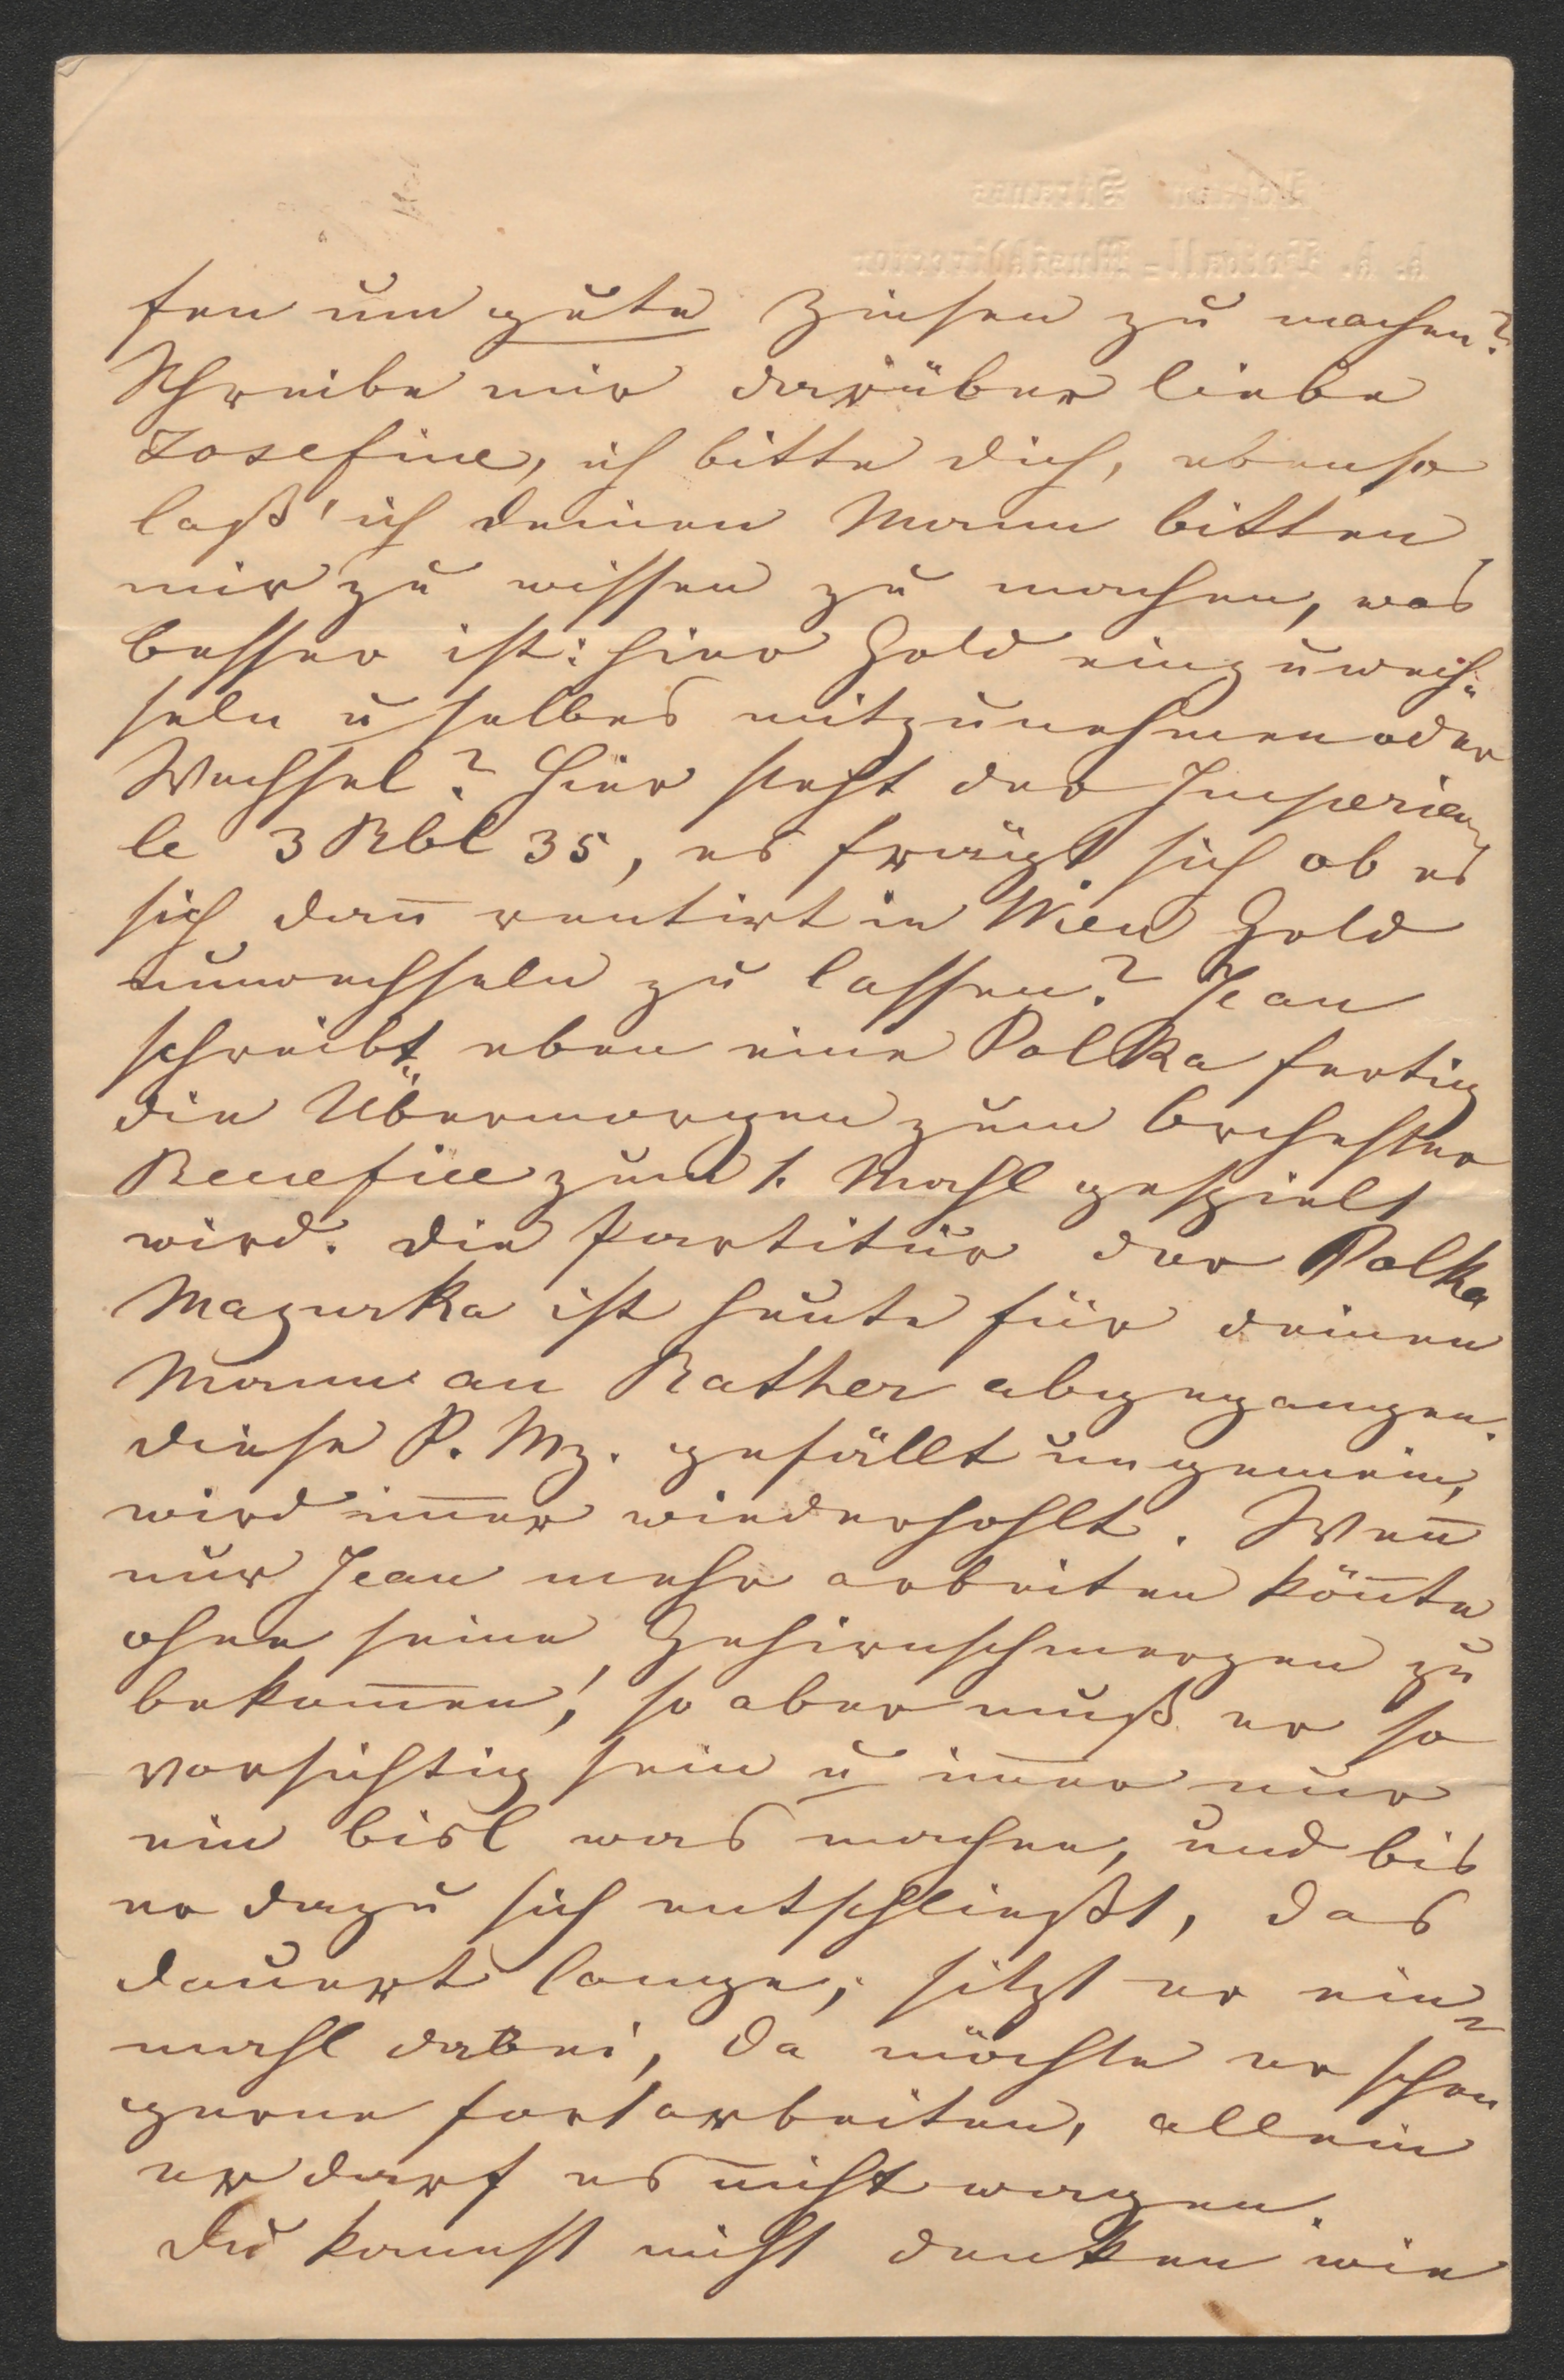 fen um gute Zinsen zu machen?
Schreibe mir darüber liebe
Josefine, ich bitte dich, ebenso
laß' ich deinen Mann bitten
mir zu wissen zu machen, was
besser ist: hier Gold einzuwech„
seln u selbes mitzunehmen oder
Wechsel? Hier steht der Imperia
le 3 Rbl 35, es frägt sich ob es
sich dan̄ rentirt in Wien Gold
umwechseln zu lassen? Jean
schreibt eben eine Polka fertig
die Übermorgen zum Orchester
Benefice zum 1. Mahl gespielt
wird. die Partitur der Polka
Mazurka ist heute für deinen
Mann an Rather abgegangen.
diese P. Mz. gefällt ungemein,
wird im̄er wiederhohlt. Wen̄
nur Jean mehr arbeiten kön̄te
ohne seine Gehirnschmerzen zu
bekom̄en! so aber muß er so
vorsichtig sein u im̄er nur
ein bisl was machen, und bis
er dazu sich entschließt, das
dauert lange; sitzt er ein=
mahl dabei, da möchte er schon
gerne fortarbeiten, allein
er darf es nicht wagen.
Du kannst nicht denken wie